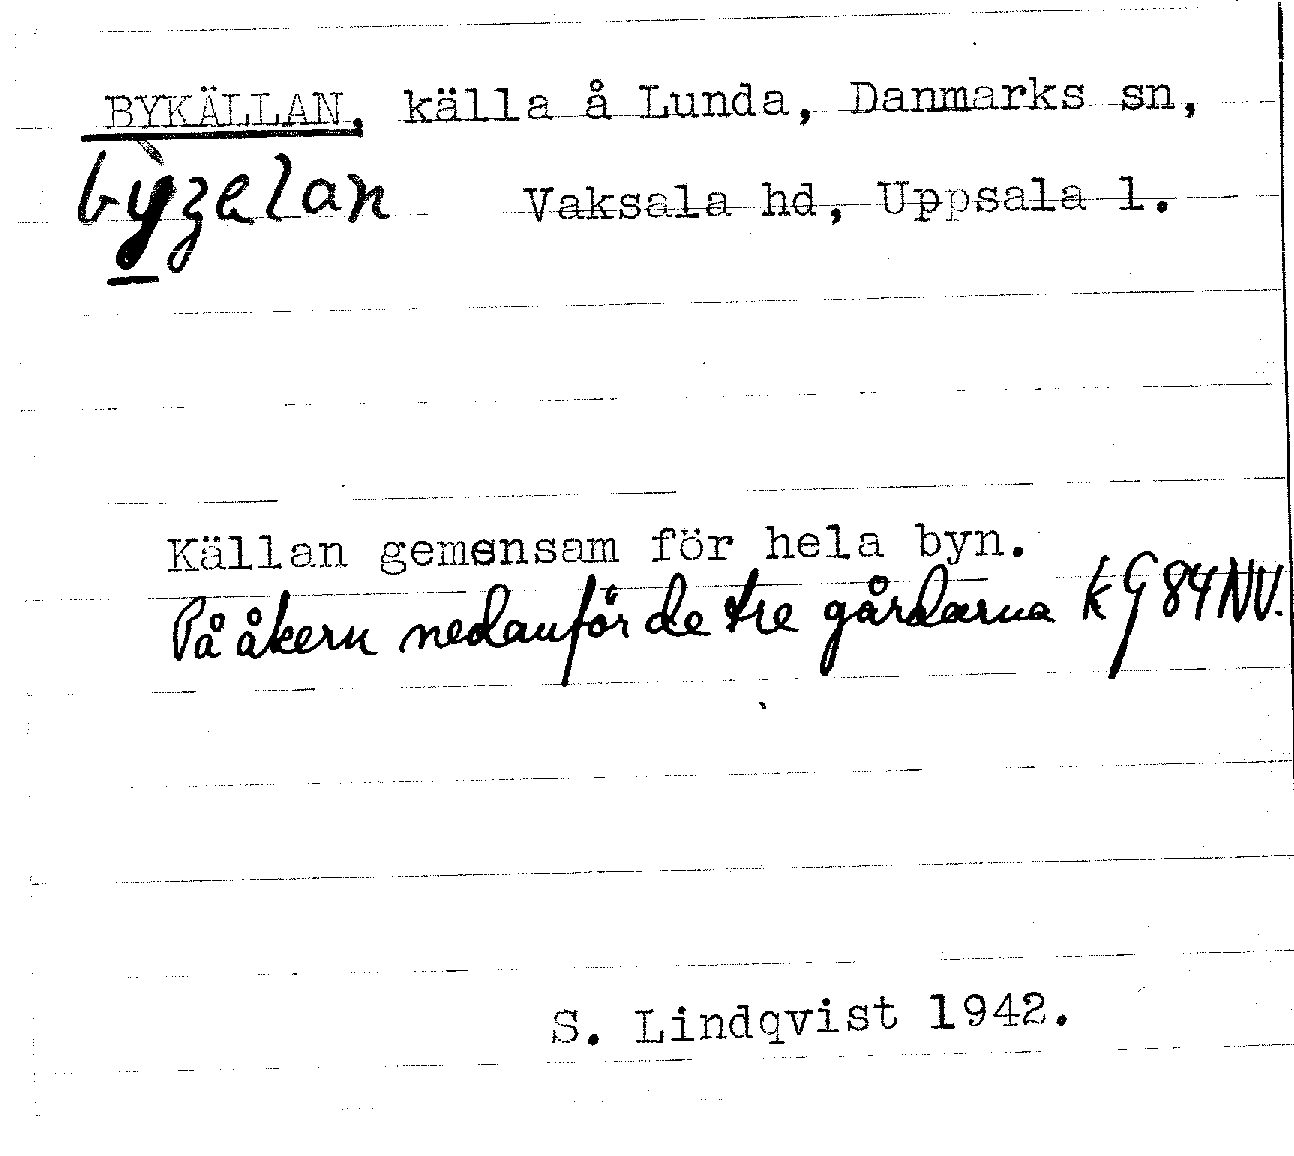 BYKÄLLAN, källa å Lunda, Danmarks sn,
Vaksala hd, Uppsala l.
Källan gemensam för hela byn.
På åkern nedanför de tre gårdarna kg 84 NV.
S. Lindqvist 1942.